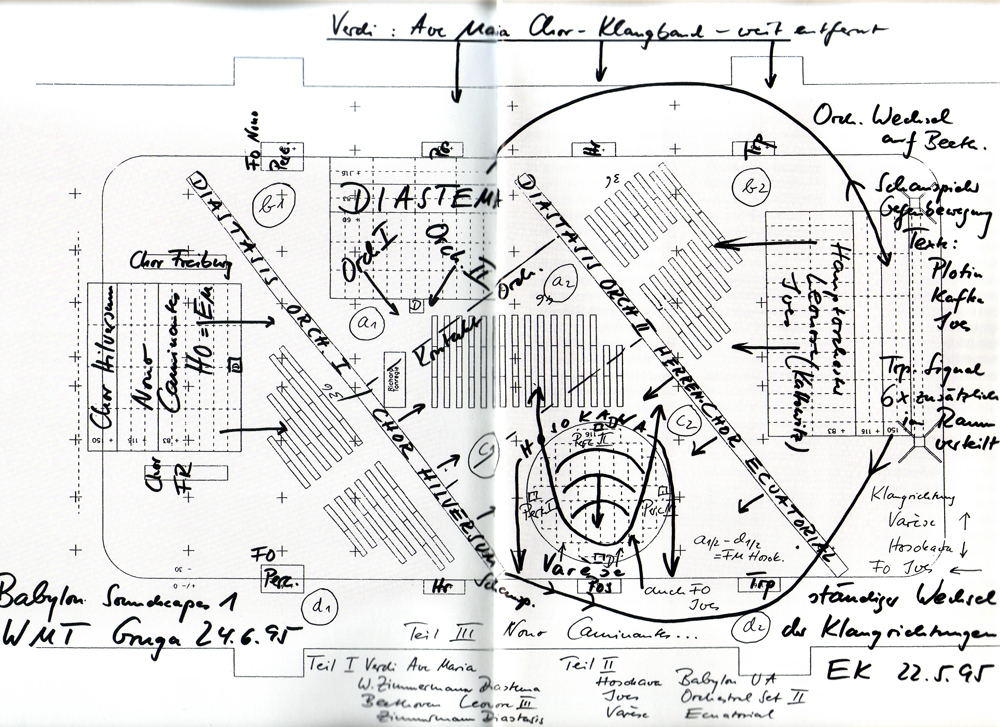 Verdi : Ave Maria Chor - Klangband - weit entfernt
Orch. Wechsel
auf Beeth.
FO Nono
Perc.
Hr
Trp
b1
b2
DIASTEMA
Orch I
Orch II
DIASTASIS ORCH. I
CHOR HILVERSUM
DIASTASIS ORCH II
HERRENCHOR ECUATORIAL
36
Schauspieler
Gegenbewegung
Text:
Plotin
Kafka
Ives
Chor Freiburg
Chor Hilversum
Nono
Caminantes
HO = EM
D
Orch.
a1
a2
46
D
Kontakte
36
Hauptorchester
Leonore
Ives
Trp. Signal
6 x zusätzlich
Raum
verteilt
50
83
118
83
118
150
c1
c2
HOSOKAWA
Perc II
Perc I
Perc
Varèse
D
Chor
FR
Klangrichtung
Varèse ↑
Hosokawa ↓
FO Ives ←
a1/2 - d1/2
= FM Hosok.
FO
Perc.
Hr
Pos
Trp
auch FO
Ives
Schausp.
30
+/- 0
d1
d2
Babylon Soundscapes 1
WMT Gruga 24.6.95
ständiger Wechsel
der Klangrichtungen
EK 22.5.95
Teil III Nono Caminantes...
Teil I Verdi Ave Maria
W. Zimmermann Diastema
Beethoven Leonore III
Zimmermann Diastasis
Teil II
Hosokawa Babylon UA
Ives Orchestral Set II
Varèse Ecuatorial